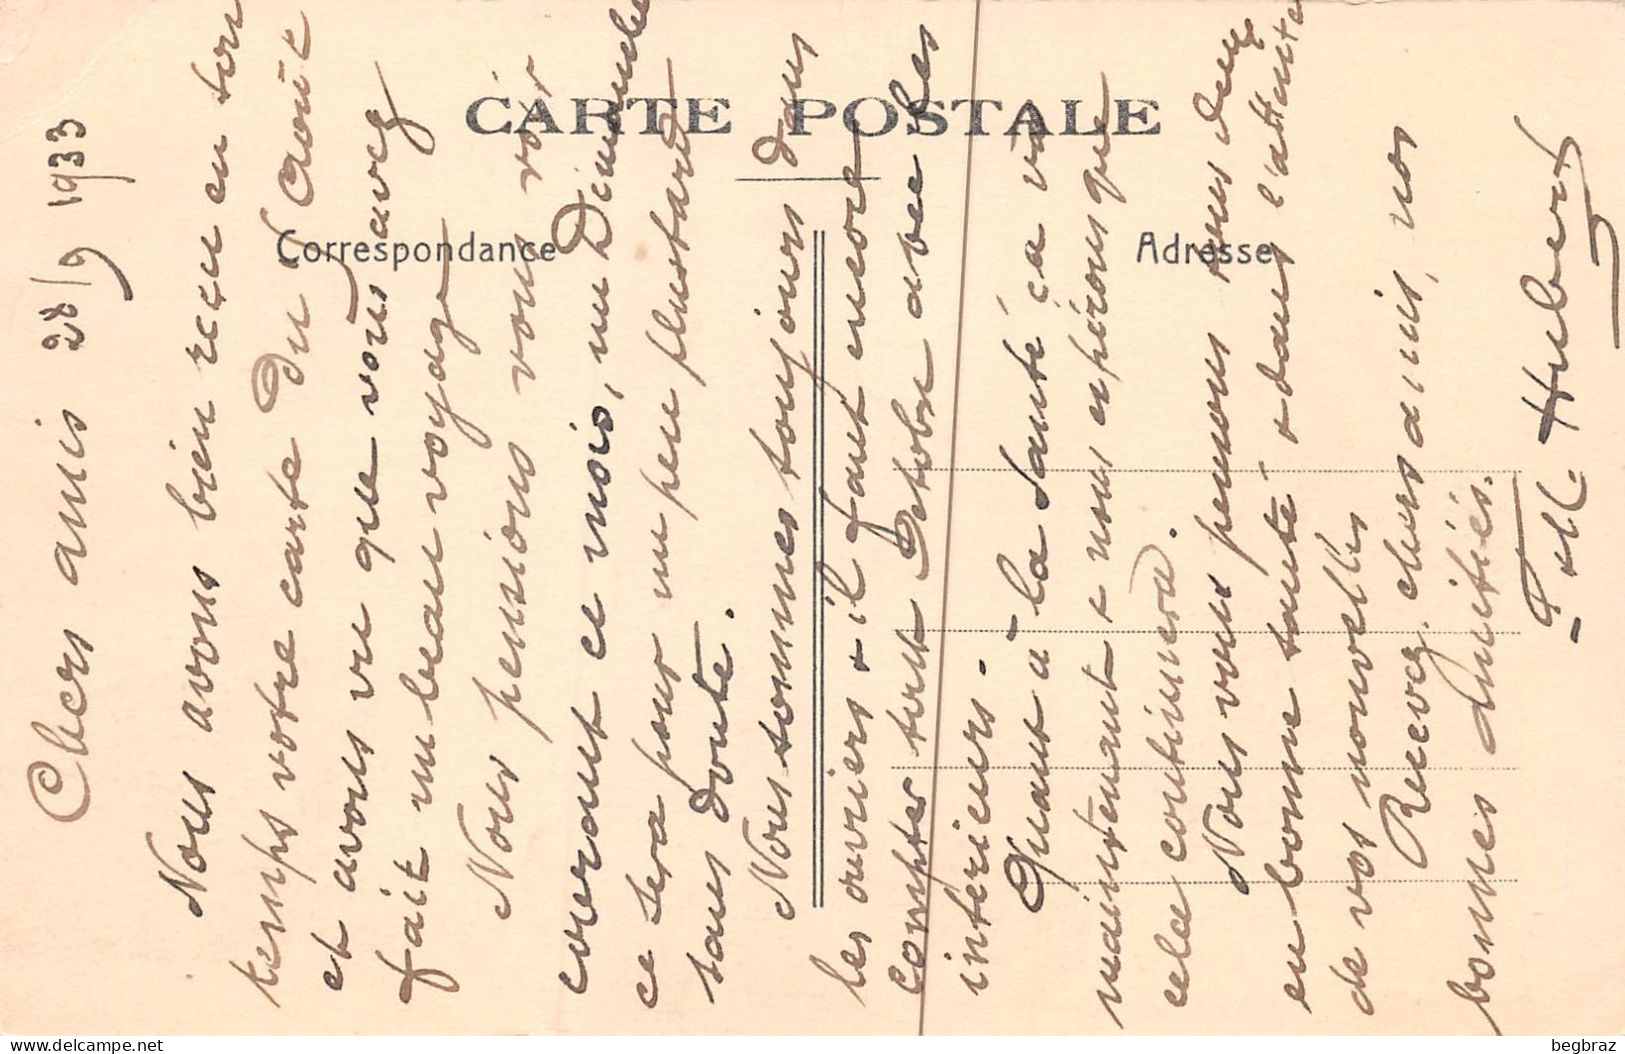 CARTE POSTALE
Correspondance
Adresse
Chers amis 28/9 1933
Nous avons bien reçu en son
temps votre carte du 5 Août
et avons vu que vous avez
fait un beau voyage
Nous pensions vous voir
courant ce mois, un Dimanche
ce sera pour un peu plus tard
sans doute.
Nous sommes toujours dans
les ouvriers & il faut encore
compter tout Octobre avec les
intérieurs.
Quant à la santé ça va
maintenant & nous espérons que
cela continuera.
Nous vous pensons tous deux
en bonne santé & dans l'attente
de vos nouvelles
Recevez, chers amis, nos
bonnes Amitiés.
Hubert
begbraz